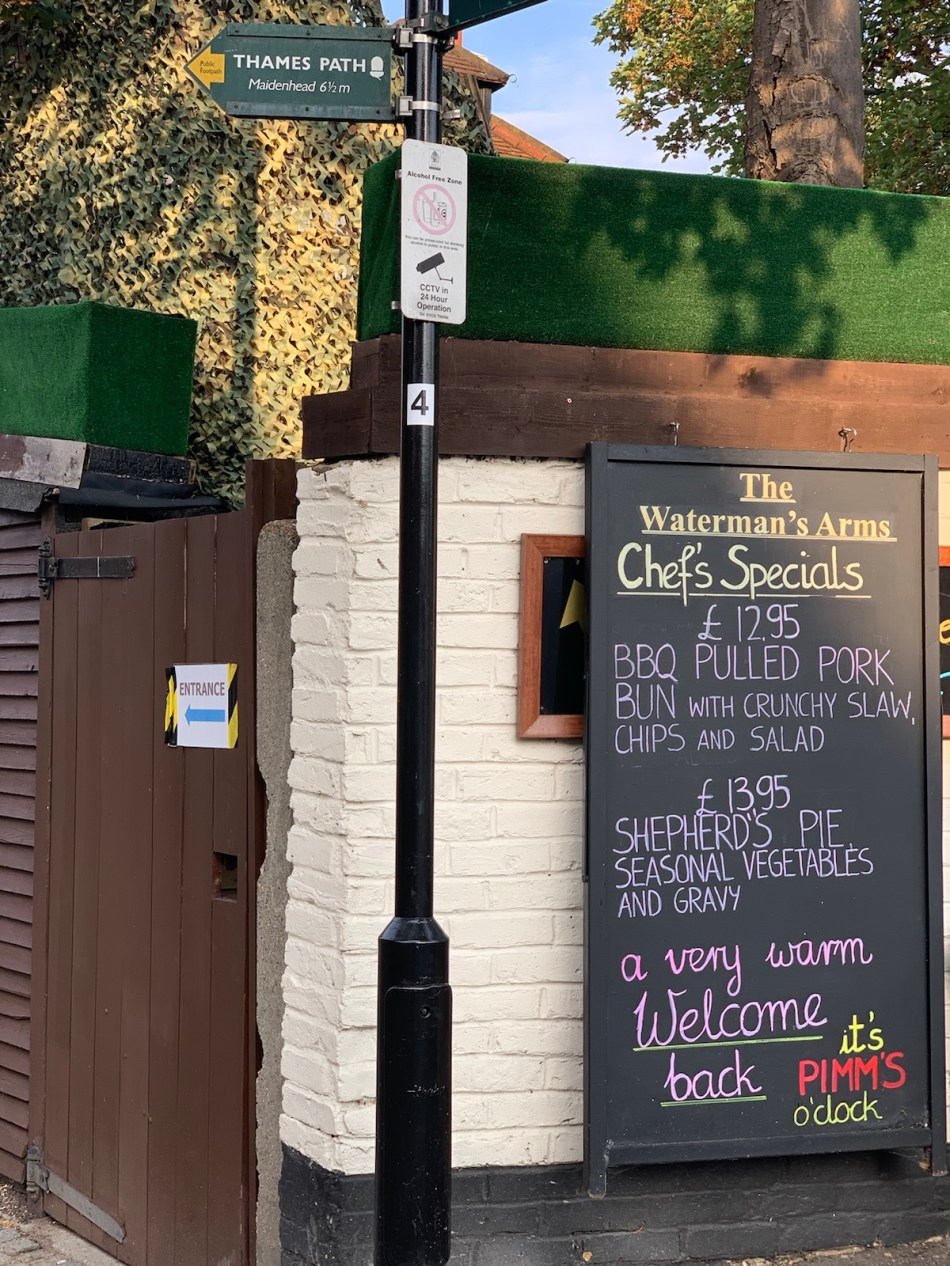 Public
Footpath
THAMES PATH
Maidenhead 6½ m
Alcohol Free Zone
You can be prosecuted for drinking
alcohol in public in this area
CCTV in
24 Hour
Operation
4
ENTRANCE
The
Waterman's Arms
Chef's Specials
£ 12.95
BBQ PULLED PORK
BUN WITH CRUNCHY SLAW,
CHIPS AND SALAD
£ 13.95
SHEPHERD'S PIE,
SEASONAL VEGETABLES
AND GRAVY
a very warm
Welcome
back
it's
PIMM'S
o'clock